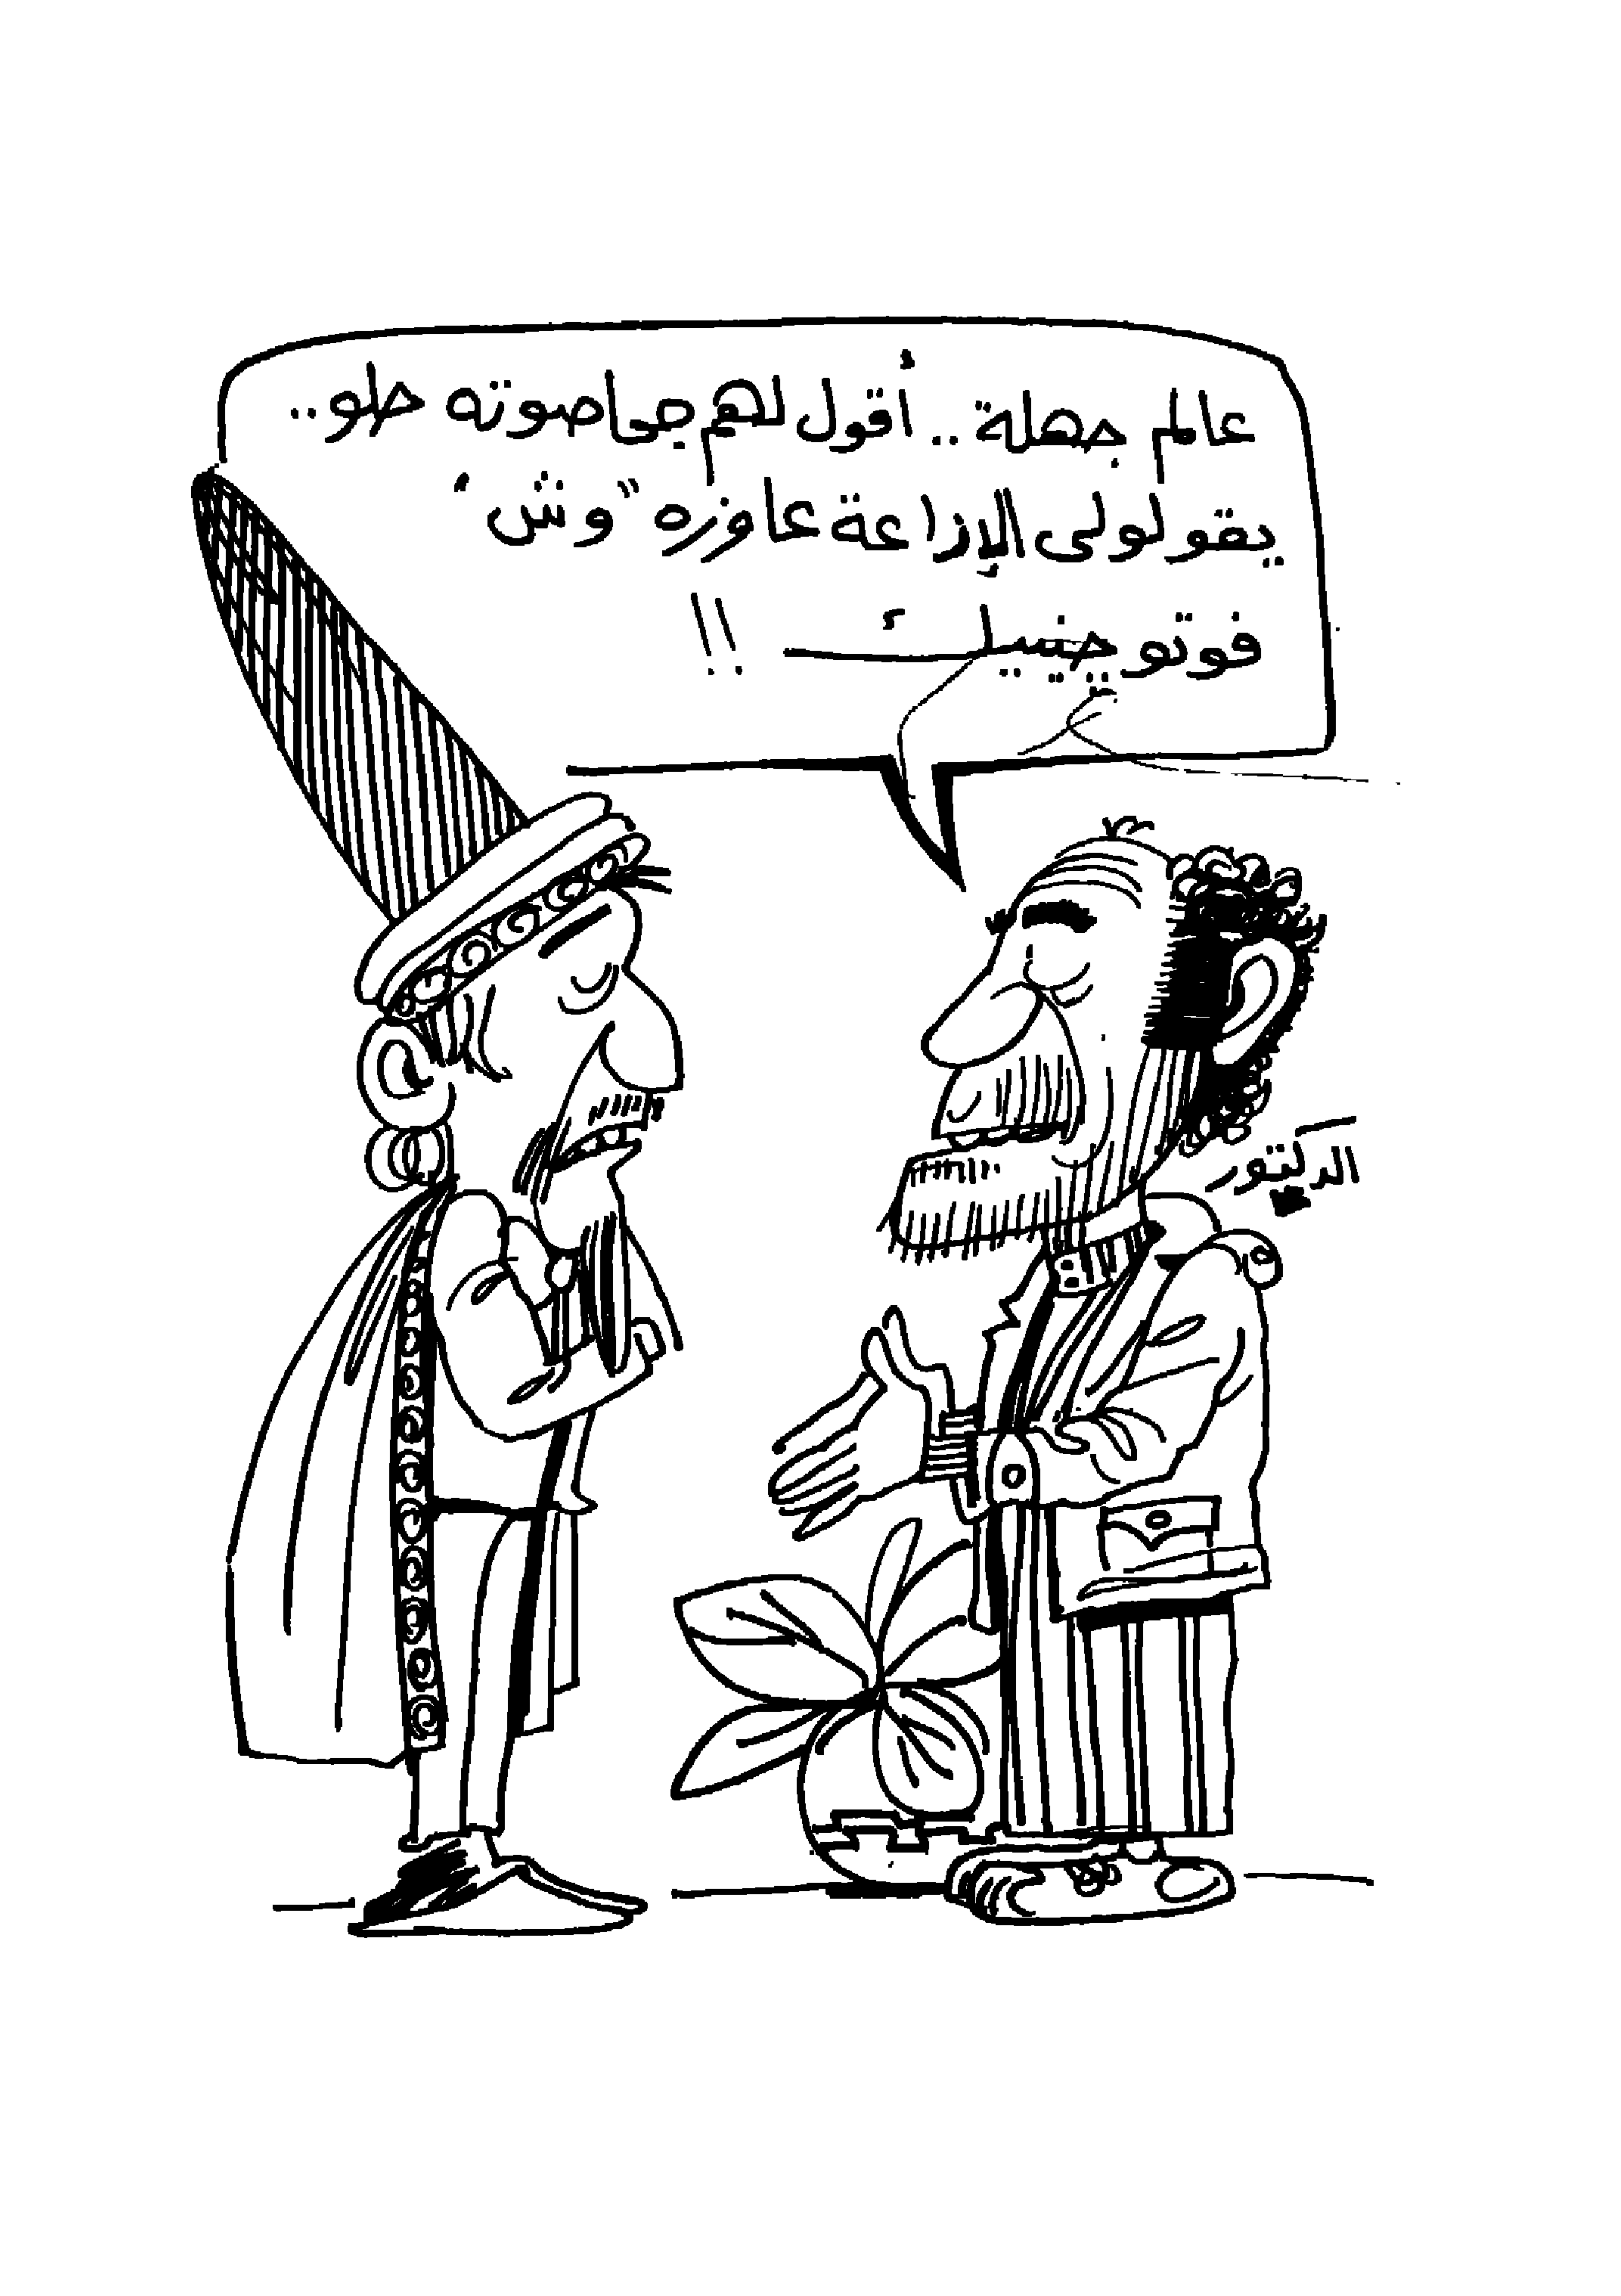 عالم جهلة .. أقول لهم جحا صوته حلو ..
يقولولى الإزاعة عاوزه "وش"
فوتوجينيك !!
الدكتور